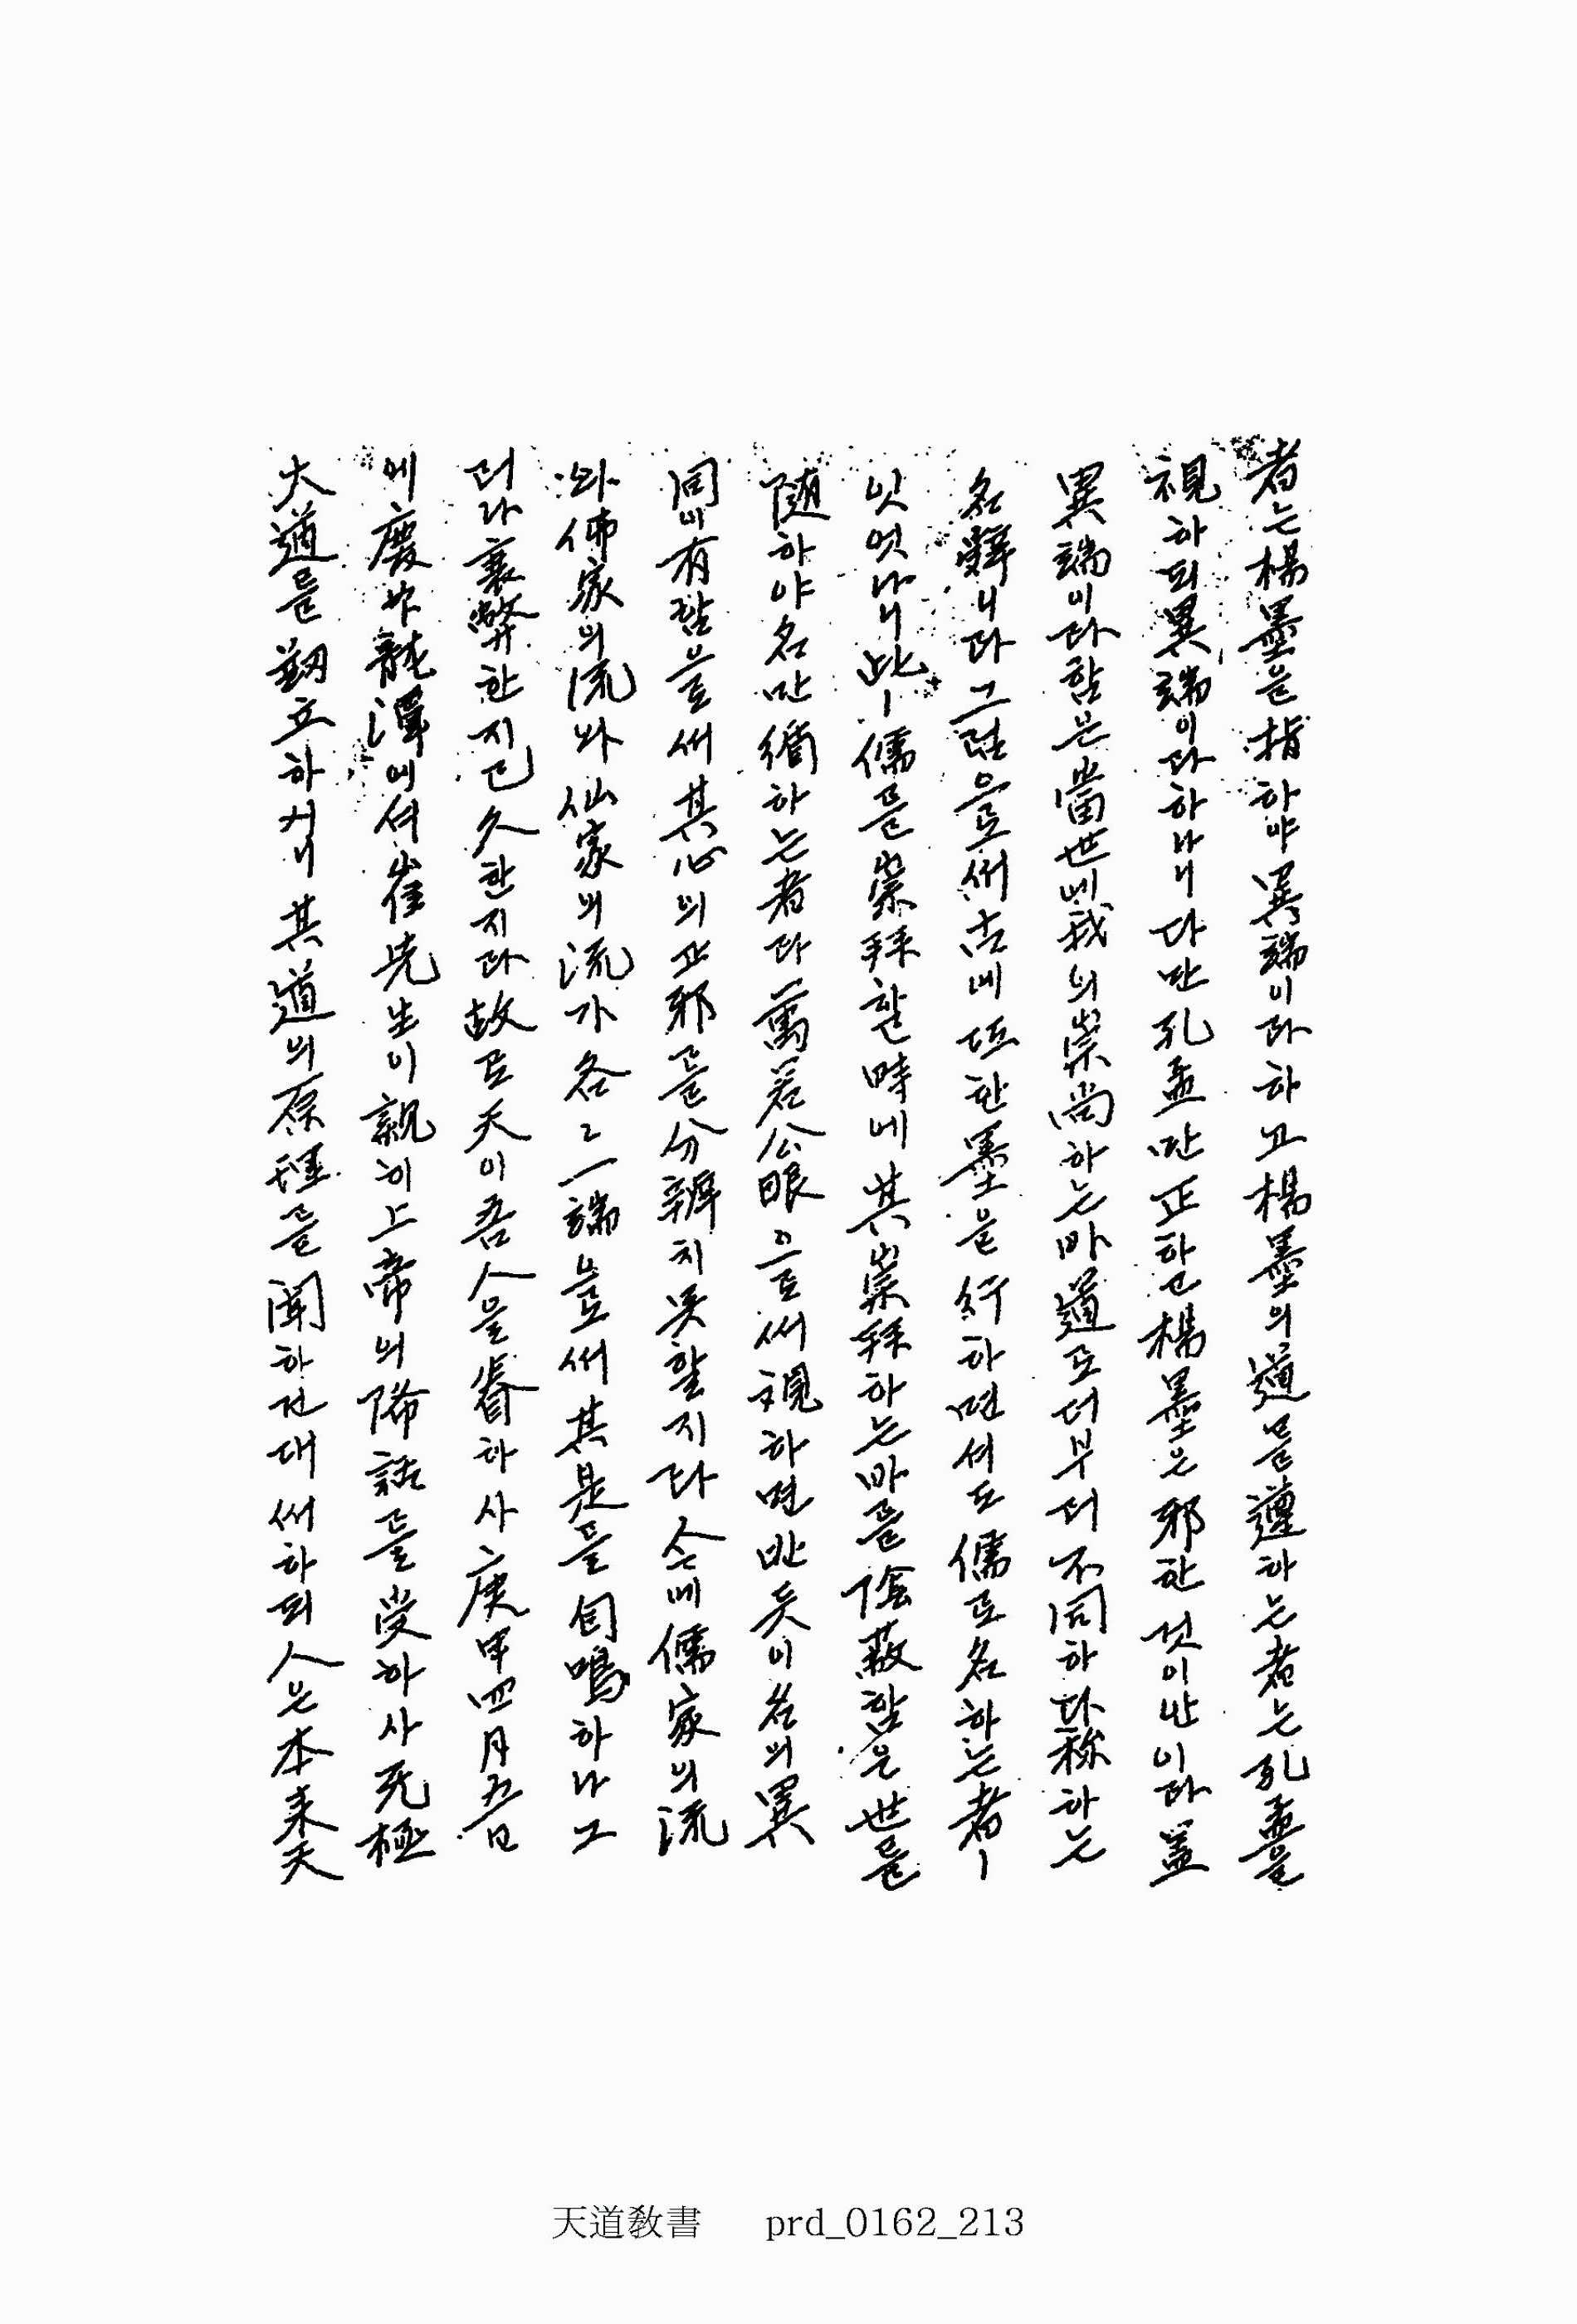 者는楊墨을指하야異端이라하고楊墨의道를遵하는者는孔孟을
視하되異端이라하나니다만孔孟만正하고楊墨은邪한것이안이라盖
異端이라함은當世에我의崇尚하는바道로더부러不同하다称하는
名辭니라그럼으로써古에도한墨을行하면셔도儒로名하는者ㅣ
잇엇나니此ㅣ儒를崇拜할時에其崇拜하는바를陰蔽함은世를
随하야名만循하는者라萬若公眼으로써視하면반듯이名의異
同이有함으로써其心의正邪를分辨치못할지라今에儒家의流
와佛家의流와仙家의流가各々一端으로써其是를自鳴하나그
러나衰弊한지已久한지라故로天이吾人을眷하사庚申四月五日
에慶州龍潭에셔崔先生이親히上帝의降話를受하사无極
大道를刱立하거니其道의原理를聞하건대써하되人은本来天
天道敎書 prd_0162_213